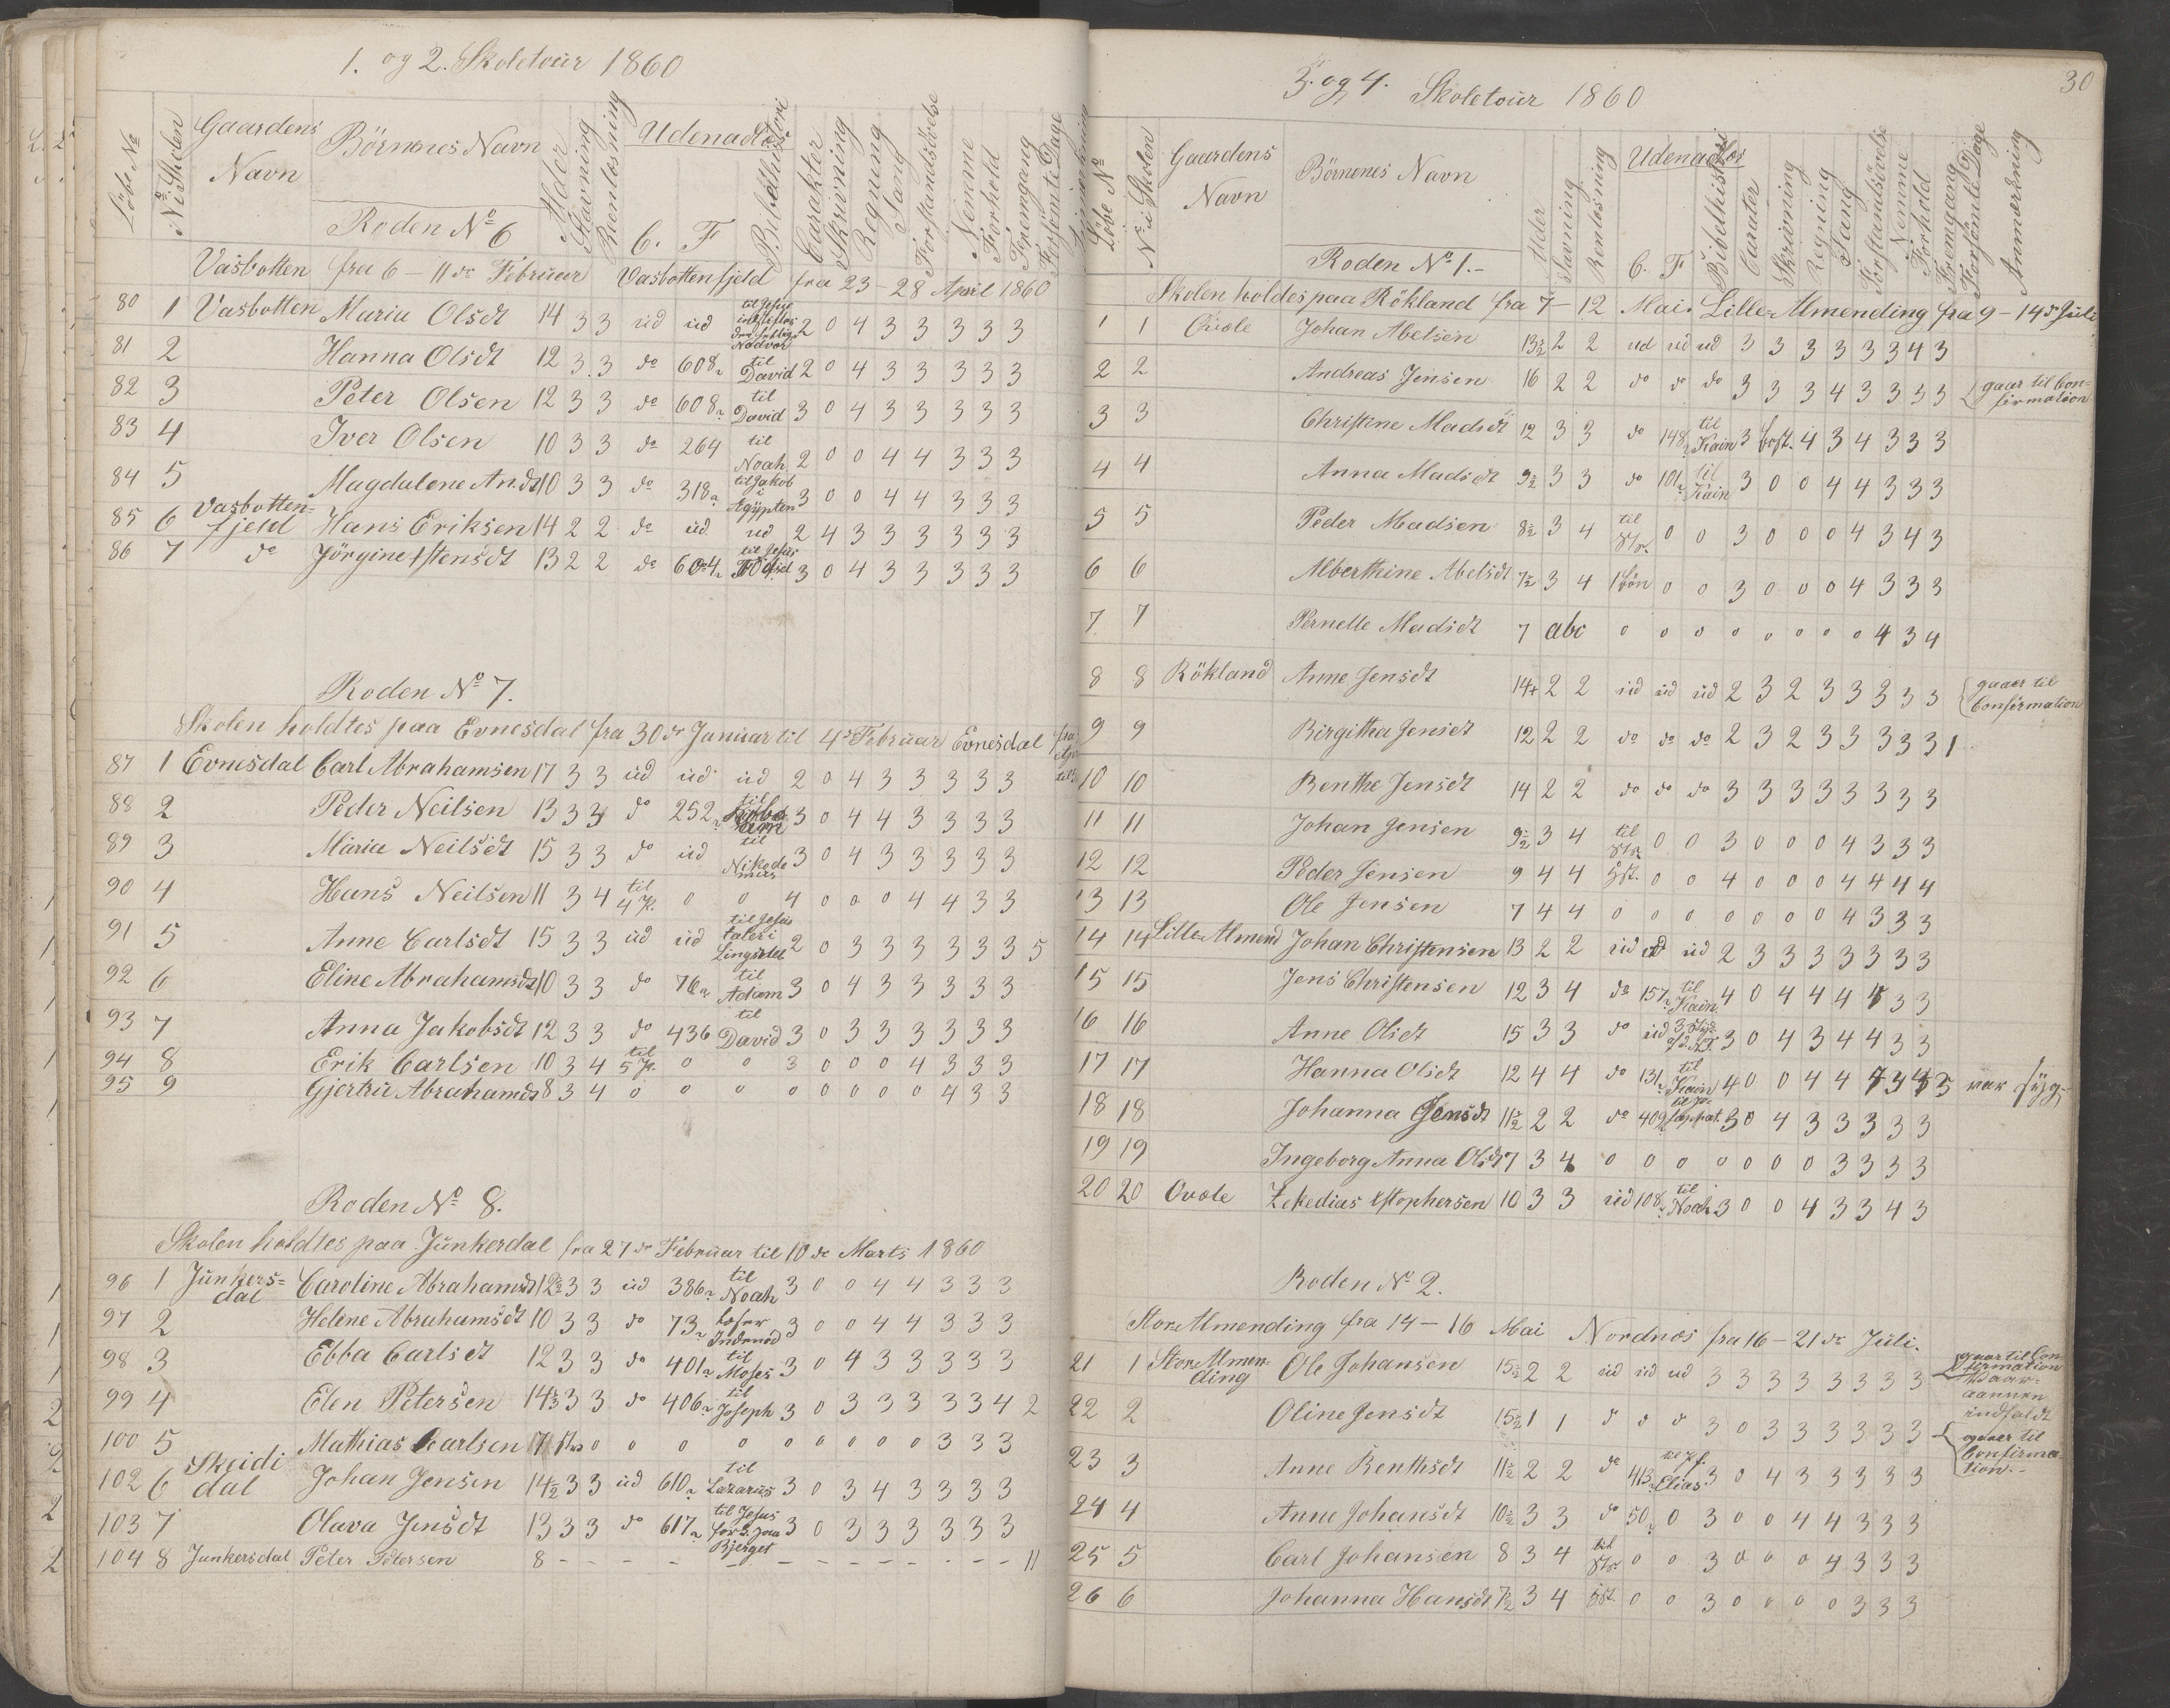 1. og 2. Skoletour 1860
Löbe No
No i Skolen
Gaardens Navn
Börnenes Navn
Alder
Stavning
Reenlæsning
Udenadlæs
C. F
Bibelhistori
Carakter
Skrivning
Regning
Sang
Forstandsövelse
Nemme
Forhold
Fremgang
Forsömte Dage
Roden No 6
Vasbotten fra 6 - 11de Februar Vasbottenfjeld fra 23 - 28 April 1860
80 1 Vasbotten Maria Olsdt 14 3 3 ud ud til Jesus 2 0 4 3 3 3 3 3
81 2 Hanna Olsdt 12 3 3 do 608 til David 2 0 4 3 3 3 3 3
82 3 Peter Olsen 12 3 3 do 608 til David 3 0 4 3 3 3 3 3
83 4 Iver Olsen 10 3 3 do 264 til Noah 2 0 0 4 4 3 3 3
84 5 Magdalene An.dt 10 3 3 do 318 til Jakob i Ægypten 3 0 0 4 4 3 3 3
85 6 Vasbotten-fjeld Hans Eriksen 14 2 2 do ud ud 2 4 3 3 3 3 3 3
86 7 do Jörgine Astensdt 13 2 2 do 604 til Jesus 3 0 4 3 3 3 3 3
Roden No 7.
Skolen holdtes paa Evnesdal fra 30de Januar til 4de Februar Evnesdal
87 1 Evnesdal Carl Abrahamsen 17 3 3 ud ud ud 2 0 4 3 3 3 3 3
88 2 Peder Neilsen 13 3 3 do 252 til 3 0 4 4 3 3 3 3
89 3 Maria Neilsdt 15 3 3 do ud til Nikodemus 3 0 4 3 3 3 3 3
90 4 Hans Neilsen 11 3 4 til 4 P. 0 0 4 0 0 0 4 4 3 3
91 5 Anne Carlsdt 15 3 3 ud ud til Jesus taler i 2 0 3 3 3 3 3 3 5
92 6 Eline Abrahamsdt 10 3 3 do 76 til Adam 3 0 4 3 3 3 3 3
93 7 Anna Jakobsdt 12 3 3 do 436 til David 3 0 3 3 3 3 3 3
94 8 Erik Carlsen 10 3 4 til 5 P. 0 0 3 0 0 0 4 3 3 3
95 9 Gjertru Abrahamsdt 8 3 4 0 0 0 0 0 0 0 0 4 3 3
Roden No 8.
Skolen holdtes paa Junkerdal fra 27de Februar til 10de Marts 1860
96 1 Junkers=dal Caroline Abrahamsdt 12½ 3 3 ud 386 til Noah 3 0 0 4 4 3 3 3
97 2 Helene Abrahamsdt 10 3 3 do 73 læser Indenad 3 0 0 4 4 3 3 3
98 3 Ebba Carlsdt 12 3 3 do 401 til Moses 3 0 4 3 3 3 3 3
99 4 Elen Petersen 14½ 3 3 do 406 til Joseph 3 0 3 3 3 3 3 4 2
100 5 Mathias Carlsen 7 0 0 0 0 0 0 0 0 0 3 3 3
102 6 Skeidi dal Johan Jensen 14½ 3 3 ud 610 til Lazarus 3 0 3 4 3 3 3 3
103 7 Olava Jensdt 13 3 3 do 617 til Jesus for. paa Bjerget 3 0 3 3 3 3 3 3
104 8 Junkersdal Peter Petersen 8 - - - - - - - - - - - - - 11
3. og 4. Skoletour 1860
30
Löbe No
No i Skolen
Gaardens Navn
Börnenes Navn
Alder
Stavning
Renlæsning
Udenadlæs
C. F
Bibelhistori
Carater
Skrivning
Regning
Sang
Forstandsövelse
Nemme
Forhold
Fremgang
Forsömte Dage
Anmærkning
Roden No 1.-
Skolen holdes paa Rökland fra 7 - 12 Mai. Lille-Almending fra 9 - 14de Juli
1 1 Johan Abelsen 13½ 2 2 ud ud ud 3 3 3 3 3 3 4 3
2 2 Andreas Jensen 16 2 2 do do do 3 3 3 4 3 3 3 3 gaar til Con-firmation
3 3 Christine Madsdt 12 3 3 do 148 til Kain 3 bogst. 4 3 4 3 3 3
4 4 Anna Madsdt 9½ 3 3 do 101 til Kain 3 0 0 4 4 3 3 3
5 5 Peder Madsen 8½ 3 4 til 0 0 3 0 0 0 4 3 4 3
6 6 Alberthine Abelsdt 7½ 3 4 1 Bön 0 0 3 0 0 0 4 3 3 3
7 7 Pernelle Madsdt 7 abc 0 0 0 0 0 0 0 0 4 3 4
8 8 Rökland Anne Jensdt 14 2 2 ud ud ud 2 3 2 3 3 3 3 3 gaaer til Confirmation
9 9 Birgitha Jensdt 12 2 2 do do do 2 3 2 3 3 3 3 3 1
10 10 Benthe Jensdt 14 2 2 do do do 3 3 3 3 3 3 3 3
11 11 Johan Jensen 9½ 3 4 til 0 0 3 0 0 0 4 3 3 3
12 12 Peder Jensen 9 4 4 0 0 4 0 0 0 4 4 4 4
13 13 Ole Jensen 7 4 4 0 0 0 0 0 0 0 4 3 3 3
14 14 Lille Almend Johan Christensen 13 2 2 ud ud ud 2 3 3 3 3 3 3 3
15 15 Jens Christensen 12 3 4 do 157 til Kain 4 0 4 4 4 4 3 3
16 16 Anne Olsdt 15 3 3 do ud 3 0 4 3 4 4 3 3
17 17 Hanna Olsdt 12 4 4 do 131 til Kain 4 0 0 4 4 3 var syg
18 18 Johanna Jensdt 11½ 2 2 do 409 3 0 4 3 3 3 3 3
19 19 Ingeborg Anna Olsdt 7 3 4 0 0 0 0 0 0 0 3 3 3 3
20 20 Zekedias Xstophersen 10 3 3 ud 108 til Noah 3 0 0 4 3 3 4 3
Roden No 2.
Stor Almending fra 14 - 16 Mai Nordnæs fra 16 - 21de Juli.
21 1 Stor Almen-ding Ole Johansen 15½ 2 2 ud ud ud 3 3 3 3 3 3 3 3 gaar til Con-firmation
22 2 Oline Jensdt 15½ 1 1 do do do 3 0 3 3 3 3 3 3 ogaaer til Confirma-tion.-
23 3 Anne Benthsdt 11½ 2 2 do 413 til Elias 3 0 4 3 3 3 3 3
24 4 Anne Johansdt 10½ 3 3 do 50 0 3 0 0 4 4 3 3 3
25 5 Carl Johansen 8 3 4 til 0 0 3 0 0 0 4 3 3 3
26 6 Johanna Hansdt 7½ 3 4 0 0 3 0 0 0 0 3 3 3